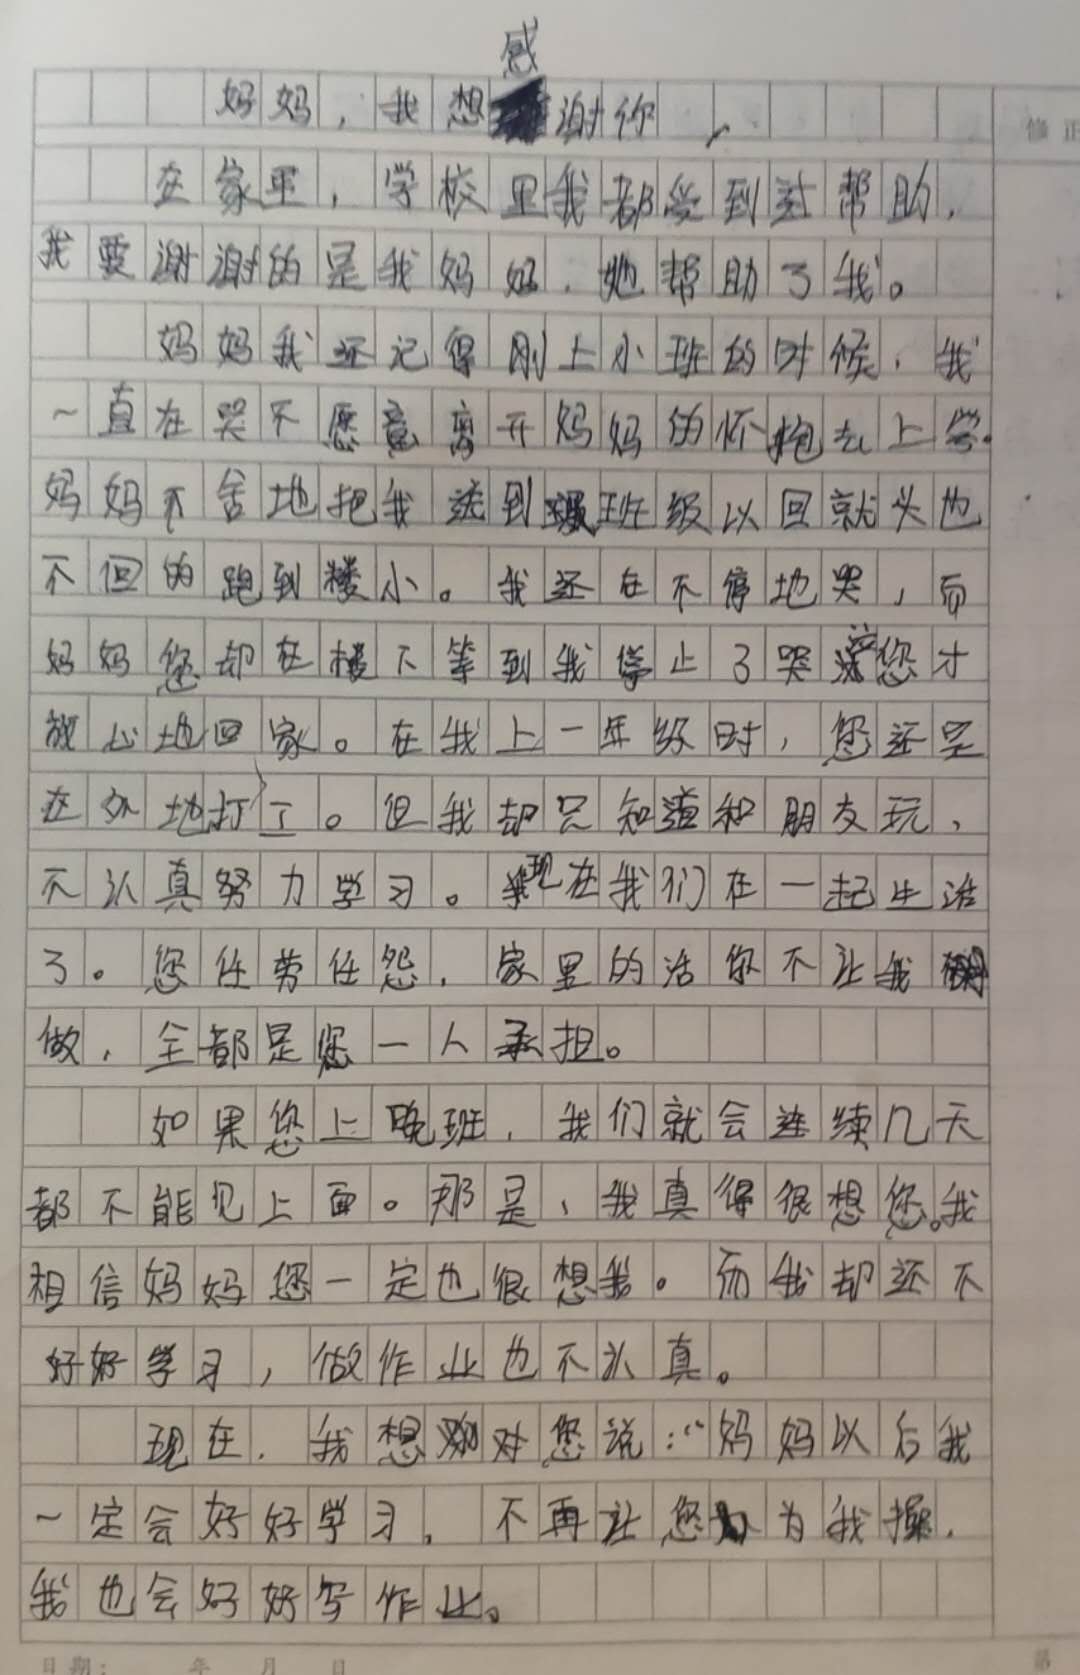 妈妈，我想感谢你
修正
在家里，学校里我都受到过帮助，
我要谢谢的是我妈妈，她帮助了我。
妈妈我还记得刚上小班的时候，我
一直在哭不愿意离开妈妈的怀抱去上学。
妈妈不舍地把我送到班级以回就头也
不回的跑到楼小。我还在不停地哭，而
妈妈您却在楼下等到我停止了哭泣您才
放心地回家。在我上一年级时，您还是
在外地打工。但我却只知道和朋友玩，
不认真努力学习。现在我们在一起生活
了。您任劳任怨，家里的活你不让我
做，全都是您一人承担。
如果您上晚班，我们就会连续几天
都不能见上面。那是，我真得很想您。我
相信妈妈您一定也很想我。而我却还不
好好学习，做作业也不认真。
现在，我想对您说：“妈妈以后我
一定会好好学习，不再让您为我操，
我也会好好写作业。
日期： 年 月 日
第